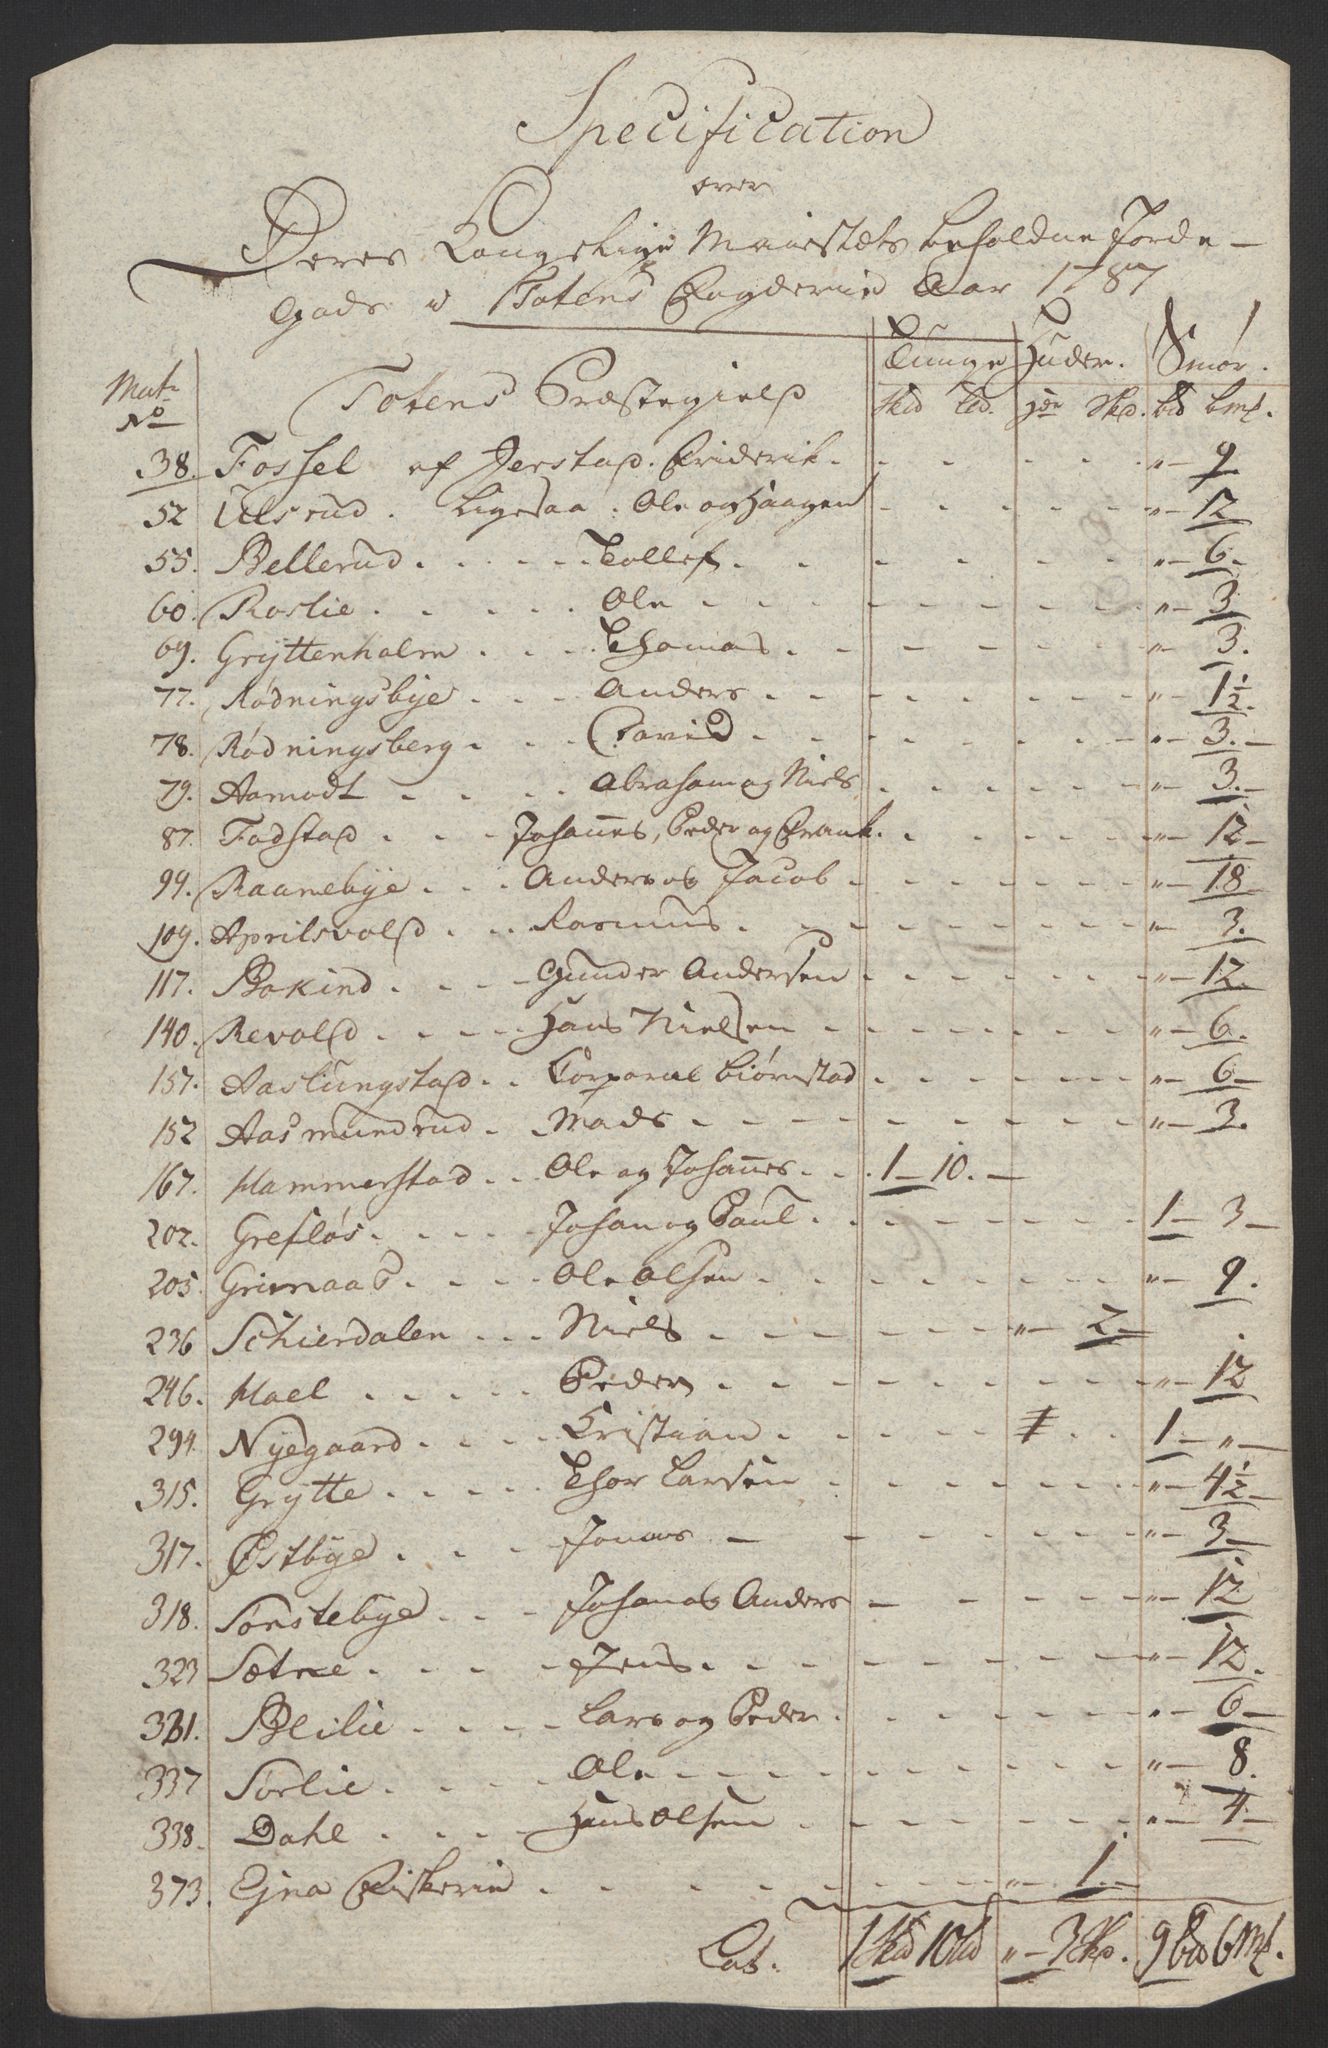 Specification
over
Deres Kongelige Maiestæts beholdne Jorde-
Gods i Totens Fogderie Aar 1787
Mat. No Totens Præstegield Tunge Huder. Smør.
Skd Ld. Hdr Skd. bd bmk.
38. Fossel af Jerstad. Friderik. " 9
52 Ulsrud. Ligesaa. Ole og Haagen " 12
55. Bellerud. Tollef. " 6.
60. Roslie. Ole " 3
69. Gryttenholm Thomas. " 3.
77. Rødningsbye Anders. " 1½.
78. Rødningsberg. David " 3.
79. Aamodt Abraham og Niels " 3.
87. Fodstad Johannes, Peder og Frank. " 12
99. Raannebye Anders og Jacob " 18
109. Aprilsvold Rasmus. " 3.
117. Bokind. Gunder Andersen " 12.
140. Revold Hans Nielsen " 6.
157. Aaslungstad. Corporal Biørnstad " 6
152 Aasmundrud Mads " 3.
167. Hammerstad Ole og Johannes. 1 10.
202. Grefløs. Johan og Paul. 1 3
205. Grimaas Ole Olsen " 9.
236 Schierdalen Niels " 2
246. Hael Peder " 12
294 Nyegaard Cristian 1 "
315. Grytte Thor Larsen " 4½
317. Østbye Jonas " 3
318. Sønstebye Johanes Anders " 12
323 Sætre Jens. " 12.
331. Blilie Lars og Peder. " 6
337 Sørlie Ole " 8.
338. Dahl Hans Olsen " 4
373. Ejna Fiskerie " 1.
Lat. 1 Skd 10 Ld " 3 Skd. 9 bd 6 mk.